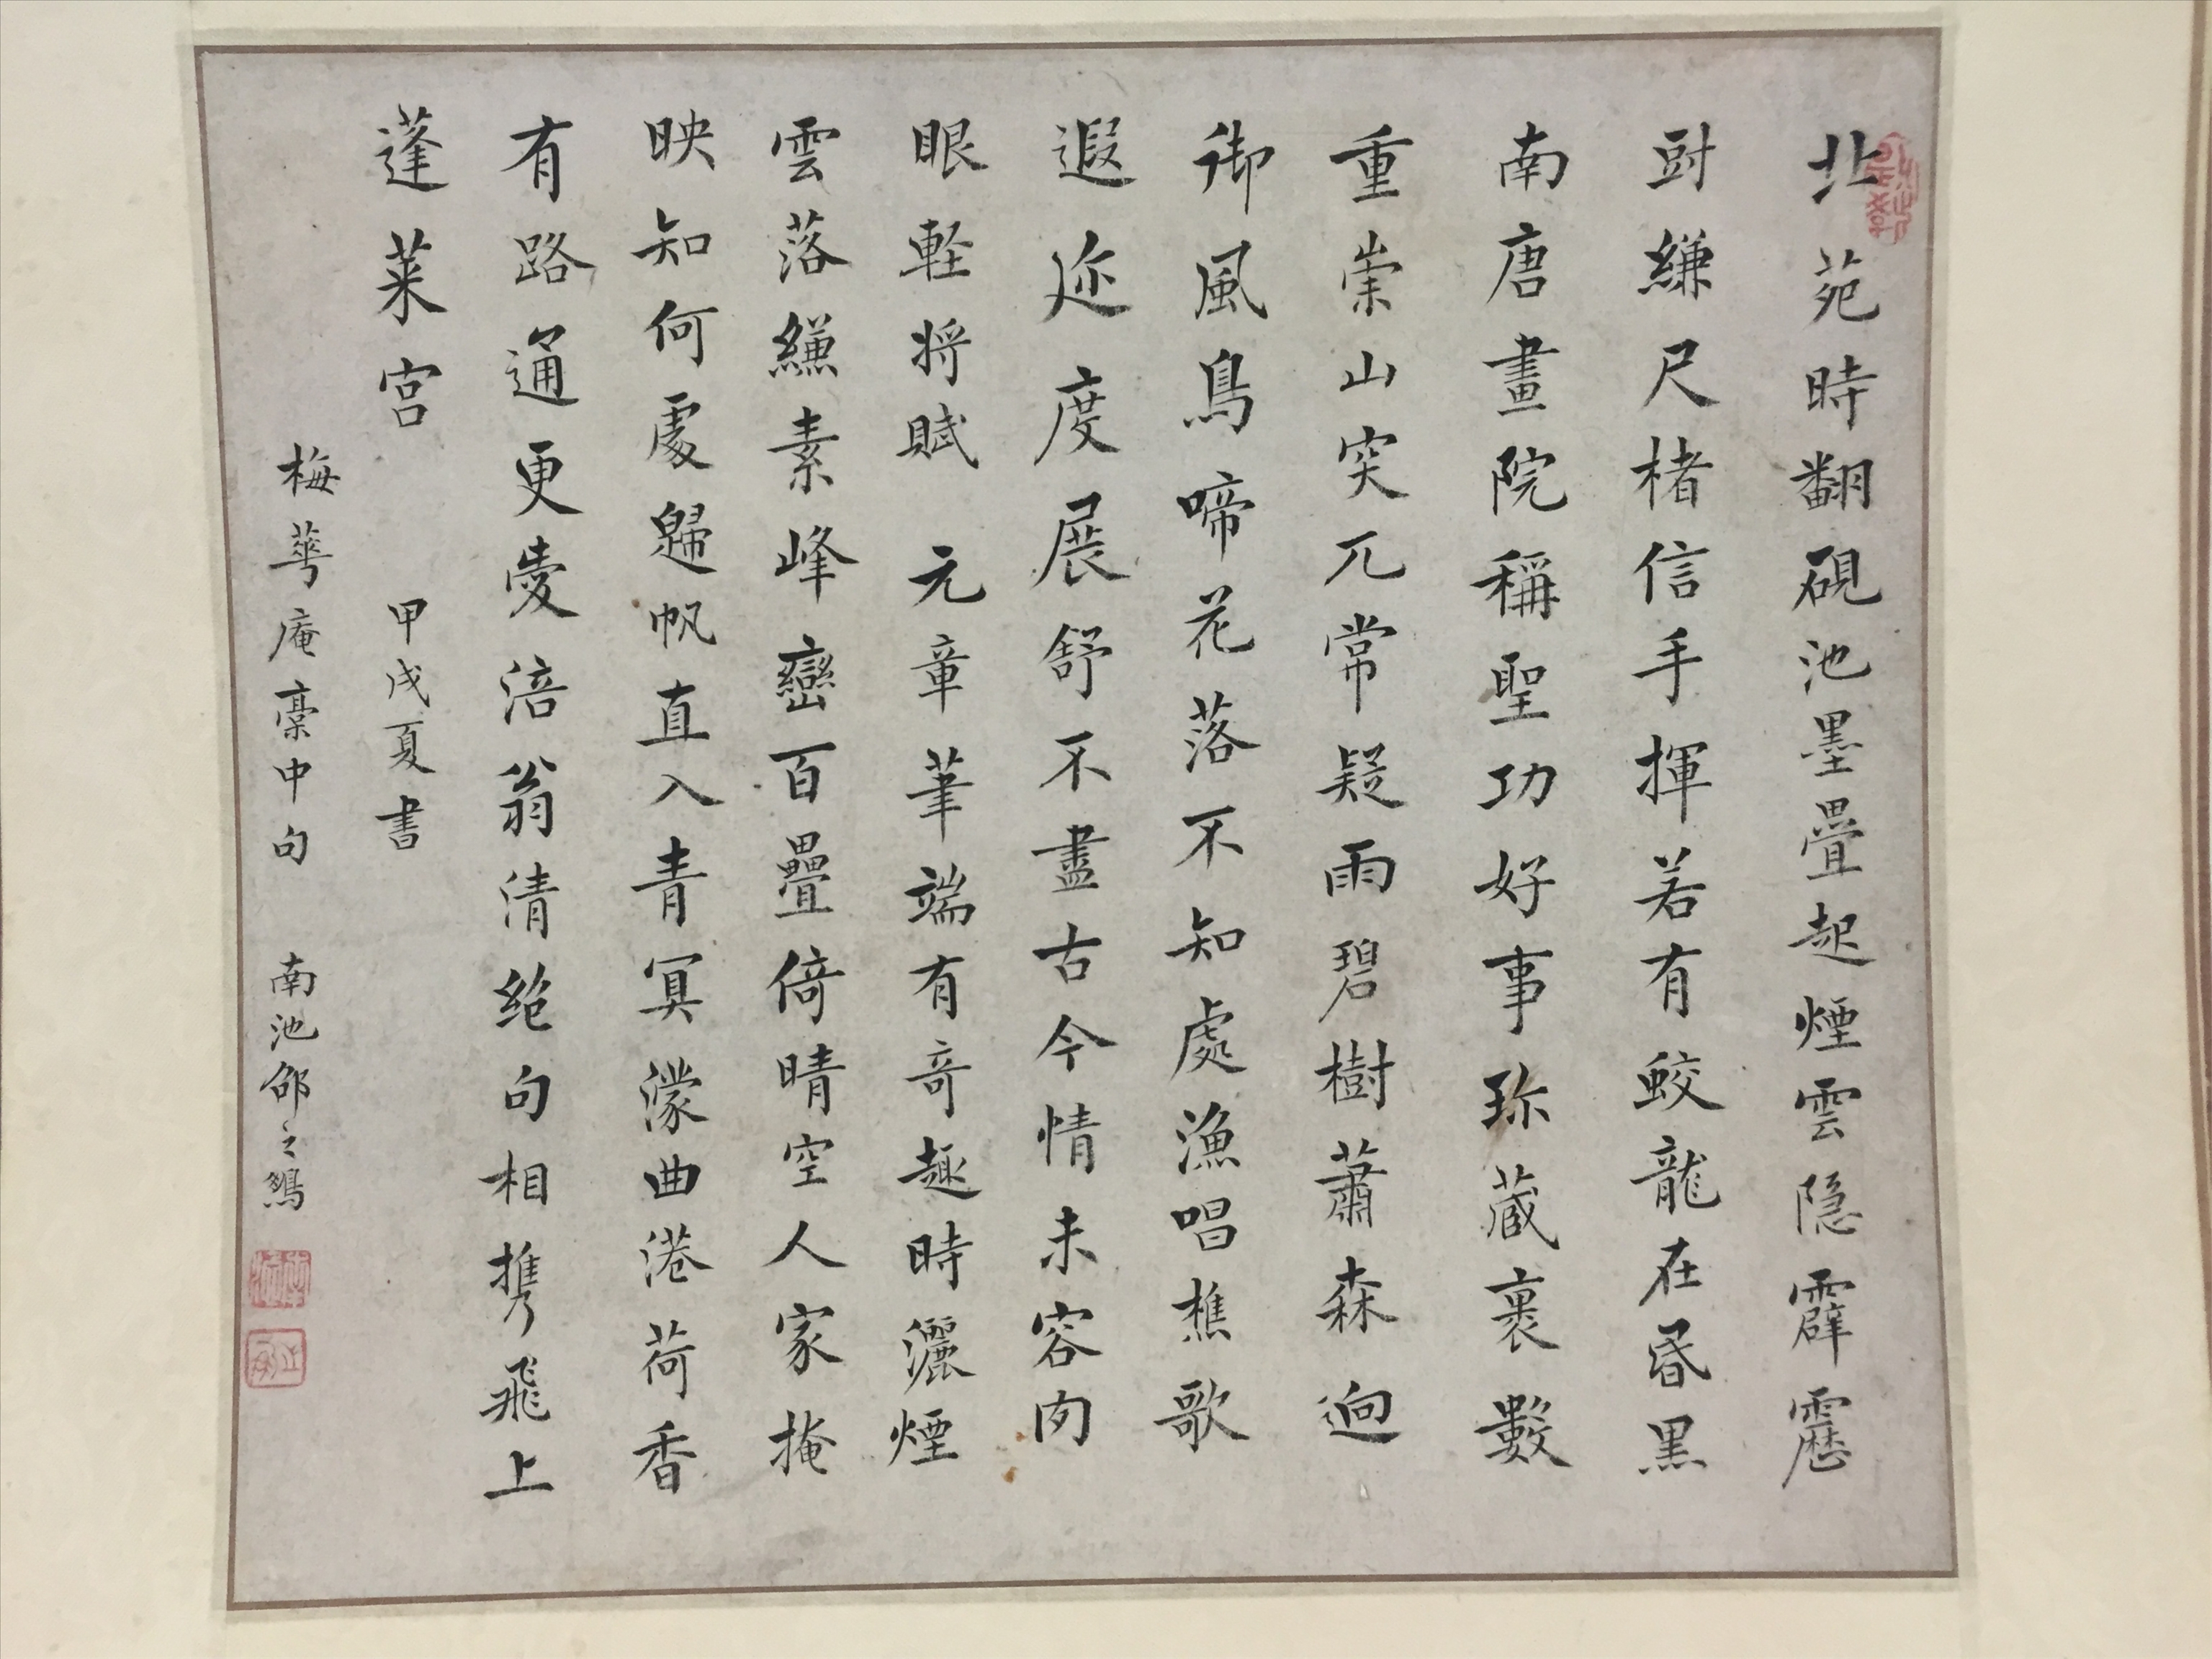 北苑時翻硯池墨疊起煙雲隱霹靂
尉縑尺楮信手揮若有蛟龍在昏黑
南唐畫院稱聖功好事珎藏裹數
重崇山突兀常疑雨碧樹蕭森迥
御風鳥啼花落不知處漁唱樵歌
遐迩度展舒不盡古今情未容肉
眼軽將賦 元章筆端有竒趣時灑煙
雲落縑素峰巒百疊倚晴空人家掩
映知何處歸帆直入青冥濛曲港荷香
有路通更愛涪翁清絶句相携飛上
蓬萊宮 甲戌夏書
梅華庵稾中句 南池邵之